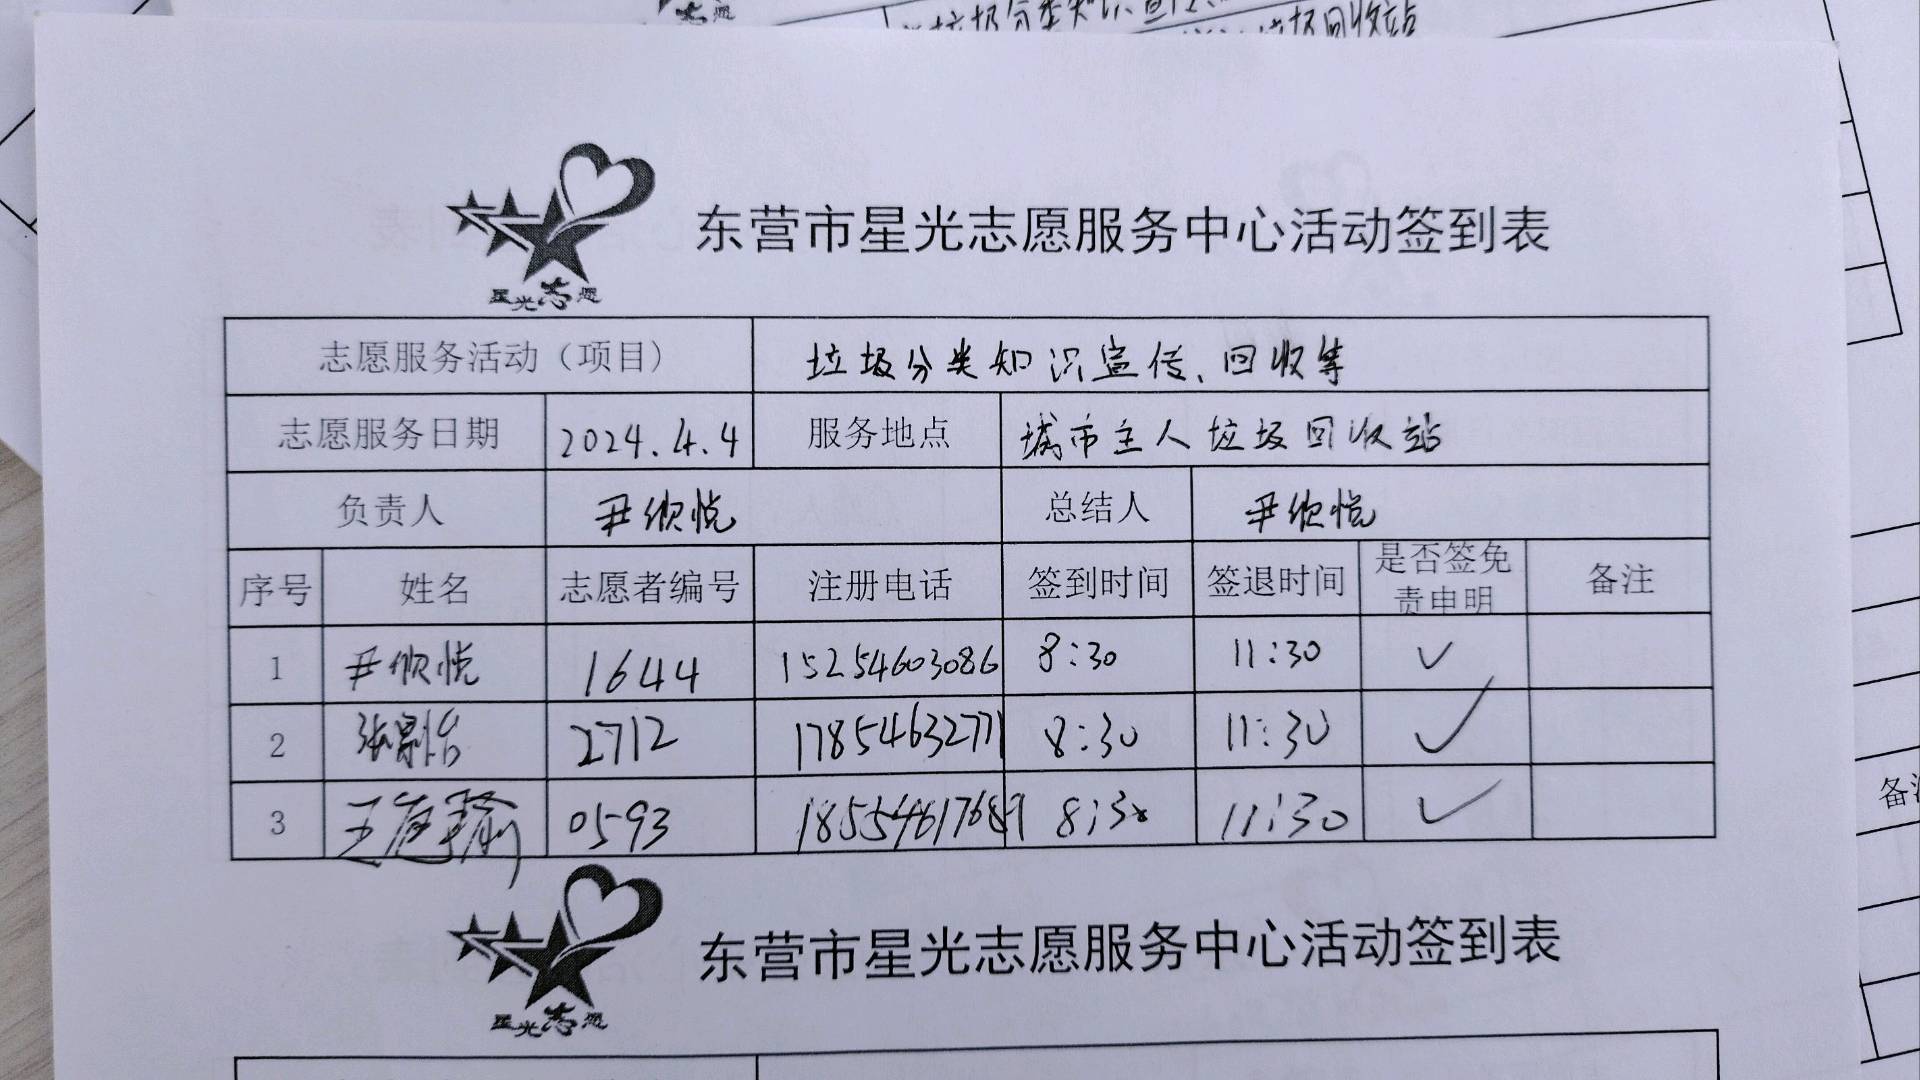 垃圾回收站
星光志愿
东营市星光志愿服务中心活动签到表
志愿服务活动（项目） 垃圾分类知识宣传、回收等
志愿服务日期 2024.4.4 服务地点 城市主人垃圾回收站
负责人 尹欣悦 总结人 尹欣悦
序号 姓名 志愿者编号 注册电话 签到时间 签退时间 是否签免责申明 备注
1 尹欣悦 1644 15254603086 8:30 11:30 ✓
2 2712 17854632771 8:30 11:30 ✓
3 0593 18554617689 8:30 11:30 ✓
星光志愿
东营市星光志愿服务中心活动签到表